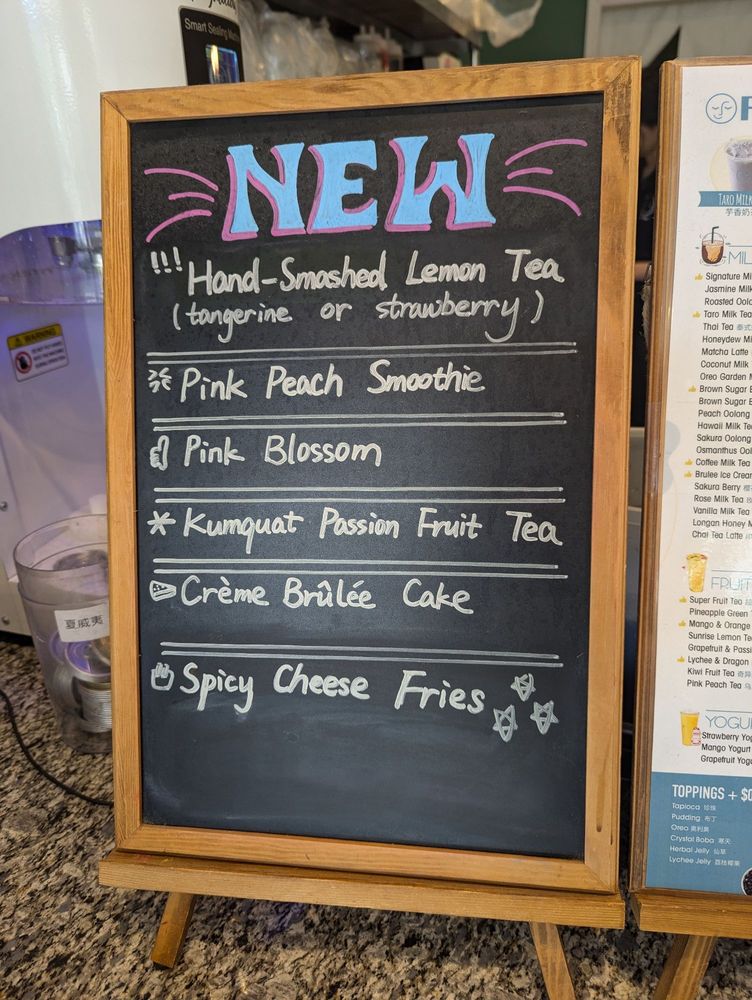 Smart Sealing
WARNING
夏威夷
NEW
!!! Hand-Smashed Lemon Tea
(tangerine or strawberry)
Pink Peach Smoothie
Pink Blossom
Kumquat Passion Fruit Tea
Crème Brûlée Cake
Spicy Cheese Fries
TARO MILK
芋香奶
Signature
Jasmine Milk
Roasted
Taro Milk Tea
Thai Tea 泰式
Honeydew
Matcha Latte
Coconut Milk
Oreo Garden
Brown Sugar
Brown Sugar
Peach Oolong
Hawaii Milk
Sakura Oolong
Osmanthus
Coffee Milk Tea
Brulee Ice
Sakura Berry
Rose Milk Tea
Vanilla Milk Tea
Longan Honey
Chai Tea Latte
FRUIT
Super Fruit Tea
Pineapple Green
Mango & Orange
Sunrise Lemon
Grapefruit &
Lychee & Dragon
Kiwi Fruit Tea
Pink Peach Tea
Strawberry
Mango Yogurt
Grapefruit
TOPPINGS +
Tapioca 珍珠
Pudding 布丁
Oreo 奥利奥
Crystal Boba 寒天
Herbal Jelly 仙草
Lychee Jelly 荔枝椰果